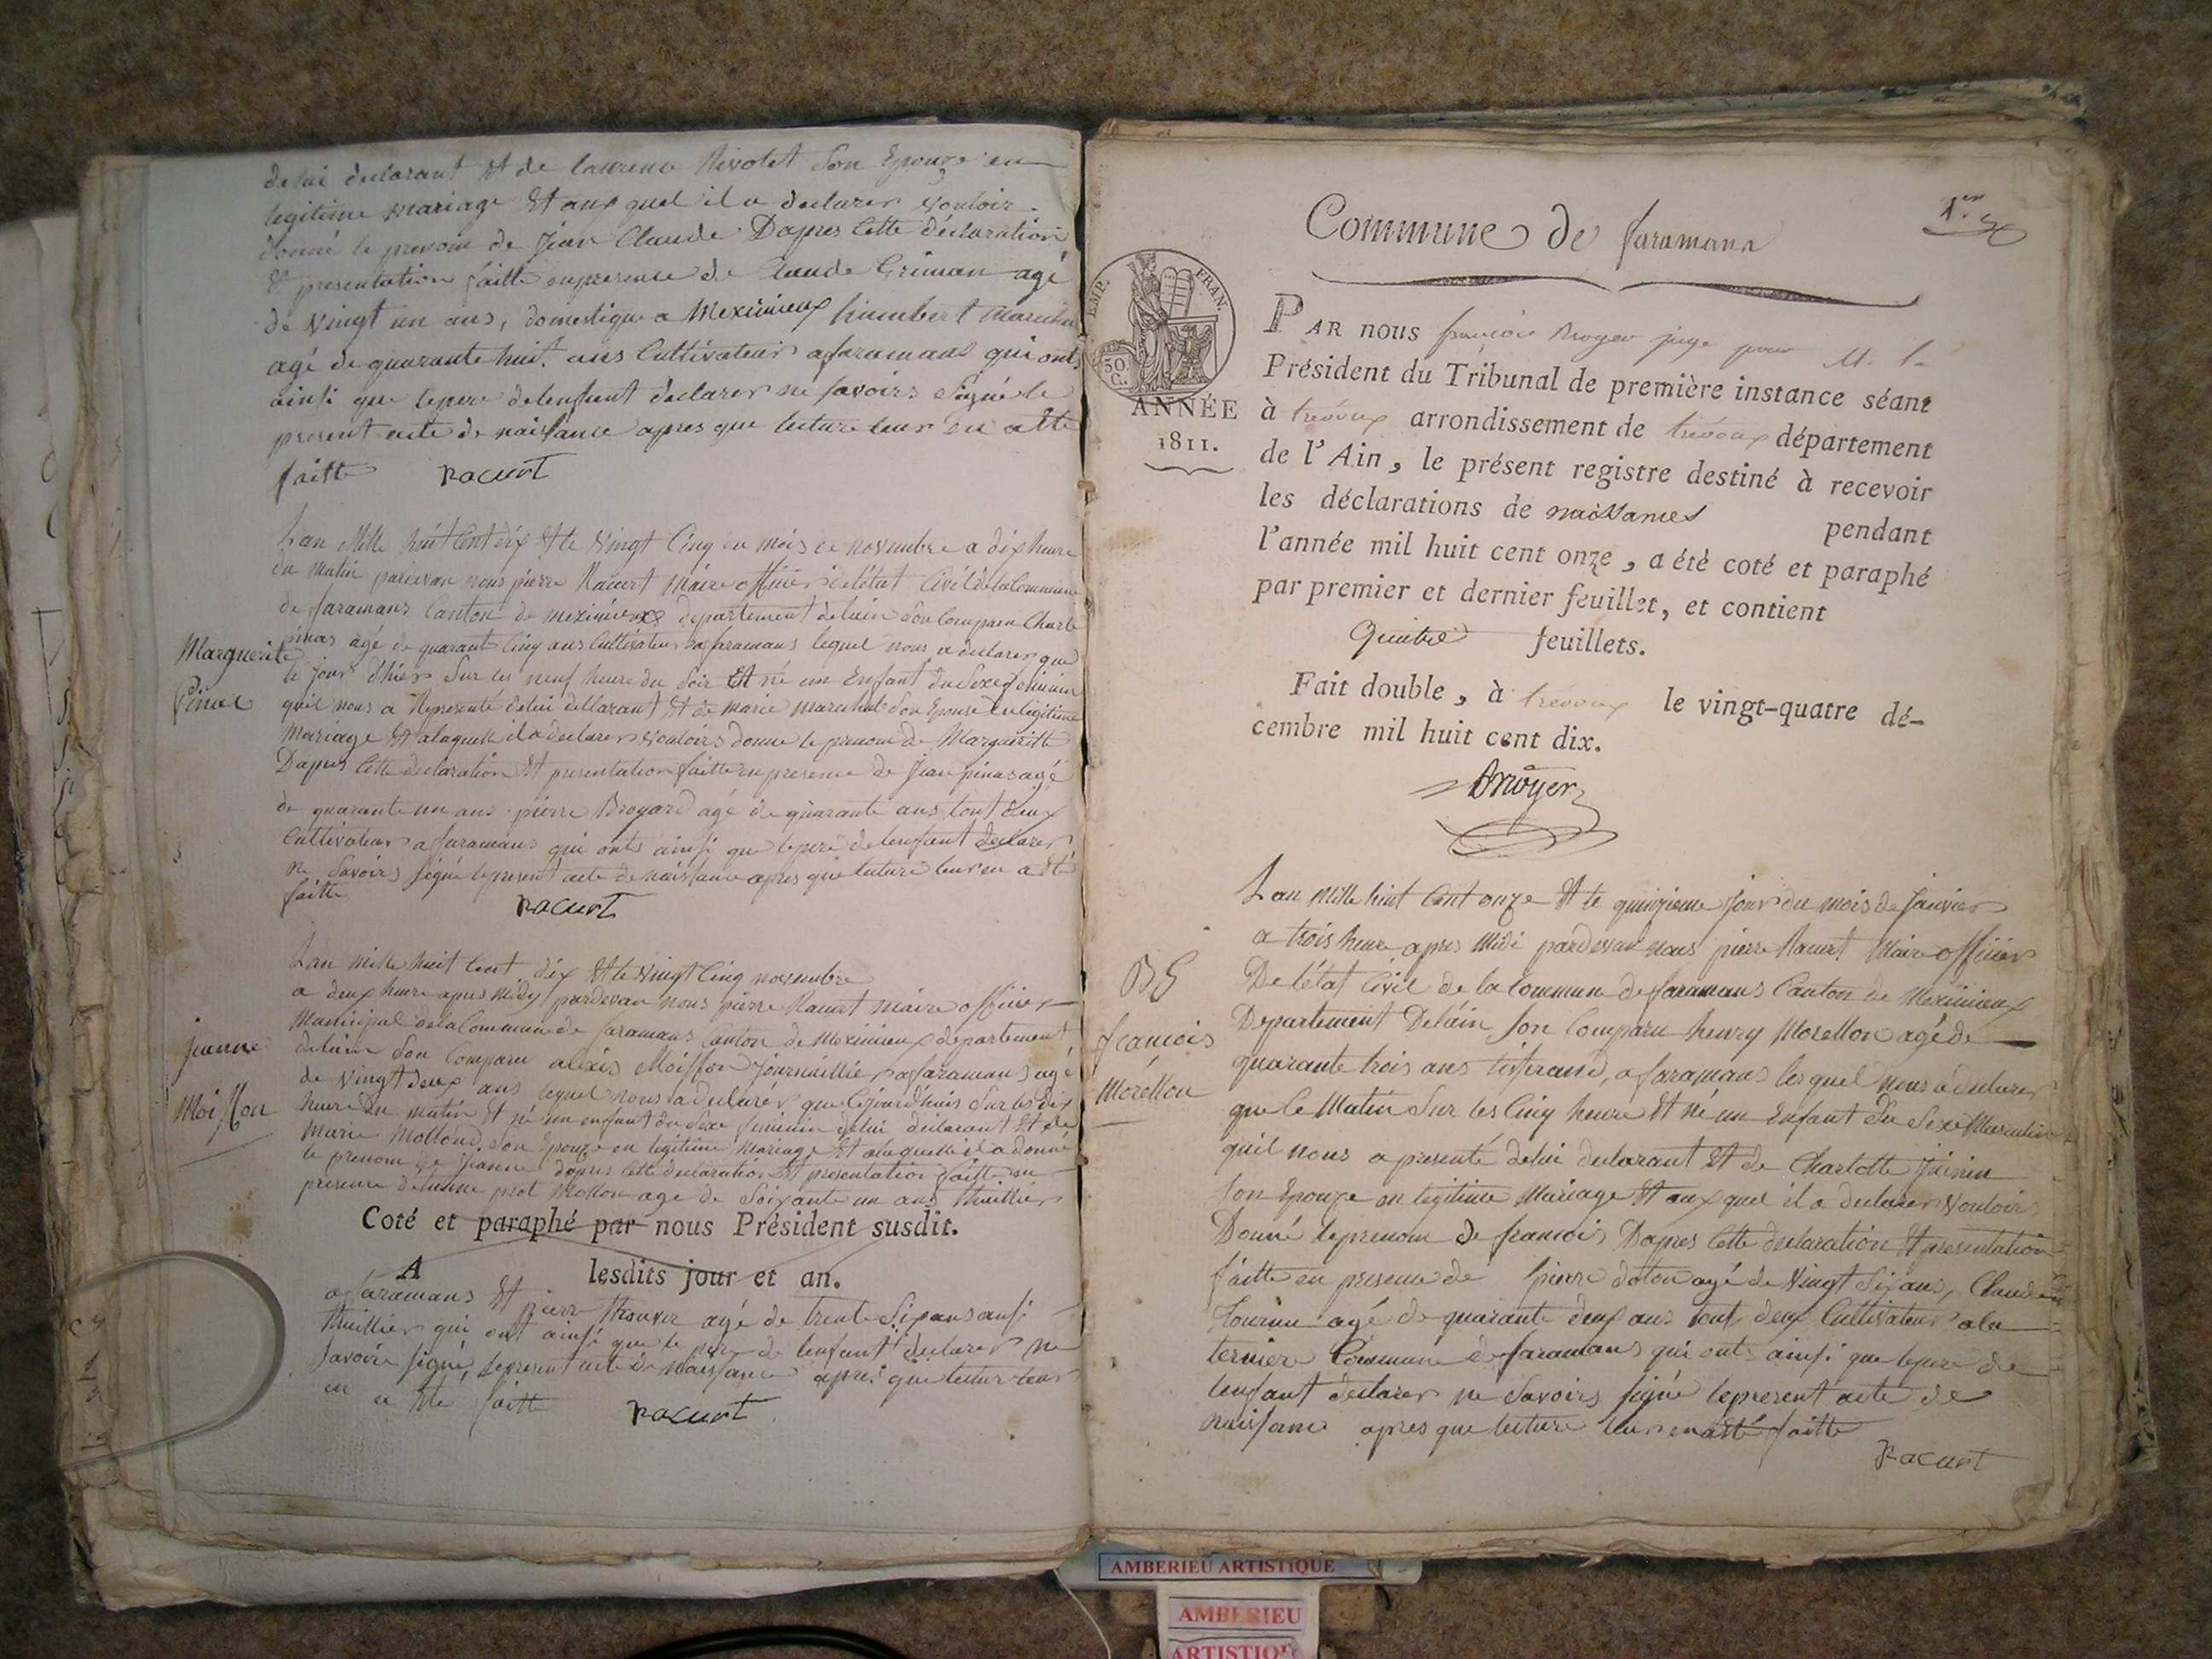 de lui declarant Et de laurence Rivolet Son Epouze en
legitime mariage Et aux quel il a declarer vouloir
donné le prenom de Jean Claude Dapres Cette déclaration
Et presentation faitte en presence de Claude Griman agé
de vingt un ans, domestique a Meximieux humbert Marechal
agé de quarante huit ans Cultivateurs a faramans qui onts
ainsi que le pere de lenfant déclarer ne Savoirs Signé le
present acte de naissance apres que lecture leur en a Eté
faitte Racurt
Lan Mille huit Cent dix Et le vingt Cinq du mois de novembre a dix heure
du matin pardevan nous pierre Racurt Maire officier de létat Civil de la Commune
de faramans Canton de meximieux departement de lain Son Comparu Charle
pinas agé de quarant Cinq ans Cultivateur a faramans lequel nous a declarer que
le jour dhier Sur les neuf heure du Soir Et né un Enfant du Sexe feminin
quil nous a Representé de lui declarant Et de marie marechal Son Epouse En legitime
Mariage Et a laquelle il a declarer vouloirs donné le prenom de Margueritte
Dapres Cette declaration Et presentation faitte en presence de Jean pinas agé
de quarante un ans pierre Broyard agé de quarante ans tout deux
Cultivateur a faramans qui onts ainsi que le pere de lenfant declarer
ne Savoirs Signé le present acte de naissance apres que lecture leur en a Eté
faitte Racurt
Marguerite
Pinas
Lan mille huit Cent dix Et le vingt Cinq novembre
a deux heure apres midy pardevan nous pierre Racurt maire officier
Municipal de la Commune de faramans Canton de Meximieux departement
de lain Son Comparu alexis Moisson Journaillier a faramans agé
de vingt deux ans lequel nous a declarér que lejourdhuis Sur les dix
heure du matin Et né un enfant du Sexe feminin de lui declarant Et de
Marie Mollond Son Epouze en legitime Mariage Et a laquelle il a donné
le prenom de Jeanne dapres Cette declaration Et presentation faitte en
presence de Mollon age de Soixante un ans thuillier
Jeanne
Moisson
Coté et paraphé par nous Président susdit.
A lesdits jour et an.
a faramans Et pierre thouver agé de trente Six ans ausi
thuillier qui ont ainsi que le pere de lenfant declarer ne
Savoire Signé, le present acte de naissance apres que lecture leur
en a Ete faitte Racurt
1er
Commune de faramans
EMP. FRAN.
50. C.
ANNÉE
1811.
PAR nous françois Broyer juge pour M. le
Président du Tribunal de première instance séant
à trévoux arrondissement de trévoux département
de l'Ain, le présent registre destiné à recevoir
les déclarations de naissances pendant
l'année mil huit cent onze, a été coté et paraphé
par premier et dernier feuillet, et contient
Quatre feuillets.
Fait double, à trevoux le vingt-quatre dé-
cembre mil huit cent dix.
Broyer
Lan mille huit Cent onze Et le quinzieme jour du mois de Janvier
a trois heure apres Midi pardevan nous pierre Racurt Maire officier
De létat Civil de la Commune de faramans Canton de Meximieux
Departement Delain Son Comparu henry Morellon agé de
quarante trois ans tisserand, a faramans lesquel nous a declarer
que le Matin Sur les Cinq heure Et né un Enfant du Sexe Masculin
quil nous a presenté delui declarant Et de Charlotte Juinin
Son Epouze en legitime Mariage Et aux quel il a declarer vouloirs
Donné le prenom de francois Dapres Cette declaration Et presentation
faitte en presence de pierre doton agé de vingt Six ans, Claude
tournu agé de quarante deux ans tout deux Cultivateur a la
terniere Commune de faramans qui onts ainsi que le pere de
lenfant declarer ne Savoirs Signé le present acte de
naissance apres que lecture leur en a Eté faitte
Racurt
francois
Morellon
AMBERIEU ARTISTIQUE
AMBERIEU
ARTISTIQUE